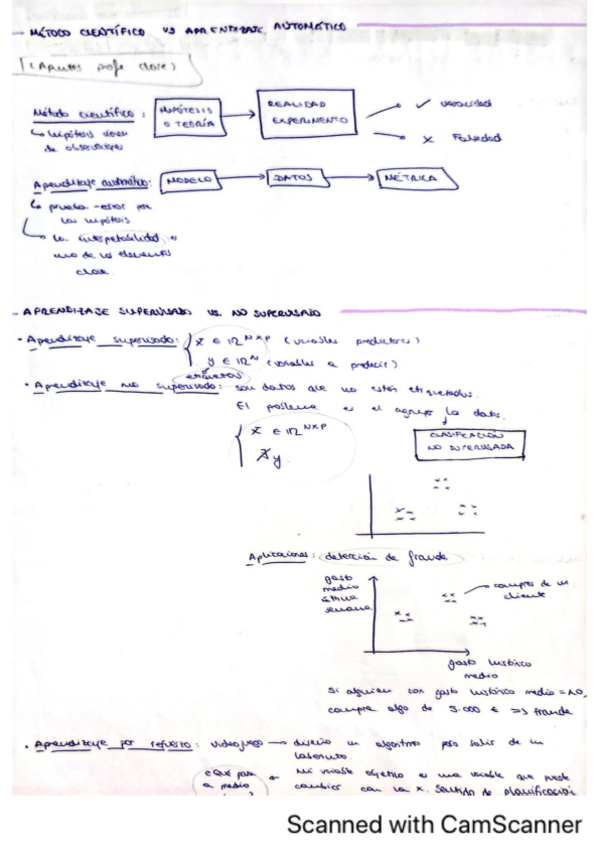 MÉTODO CIENTÍFICO VS APRENDIZAJE AUTOMÁTICO
(Apuntes profe clase)
Método científico:
HIPÓTESIS O TEORÍA
REALIDAD EXPERIMENTO
✓ Veracidad
x Falsedad
↳ hipótesis
de observaciones
Aprendizaje automático:
MODELO
DATOS
MÉTRICA
↳ prueba-error por
las hipótesis
↳ la interpretabilidad es
uno de los elementos
clave.
- APRENDIZAJE SUPERVISADO VS. NO SUPERVISADO
· Aprendizaje supervisado: { X ∈ ℝ^{N×P} (variables predictoras)
y ∈ ℝ^N (variables a predecir)
etiquetas
· Aprendizaje no supervisado: son datos que no están etiquetados.
El problema es el agrupar los datos.
X ∈ ℝ^{N×P}
∄ y
CLASIFICACIÓN
NO SUPERVISADA
Aplicaciones: detección de fraude
gasto
medio
última
semana
compras de un
cliente
gasto histórico
medio
Si alguien con gasto histórico medio = 10,
compra algo de 3.000 € => fraude
· Aprendizaje por refuerzo: videojuego → diseño un algoritmo para salir de un
laberinto.
Mi variable objetivo es una variable que puede
cambiar con la x. Sentido de planificación
a medio
Scanned with CamScanner